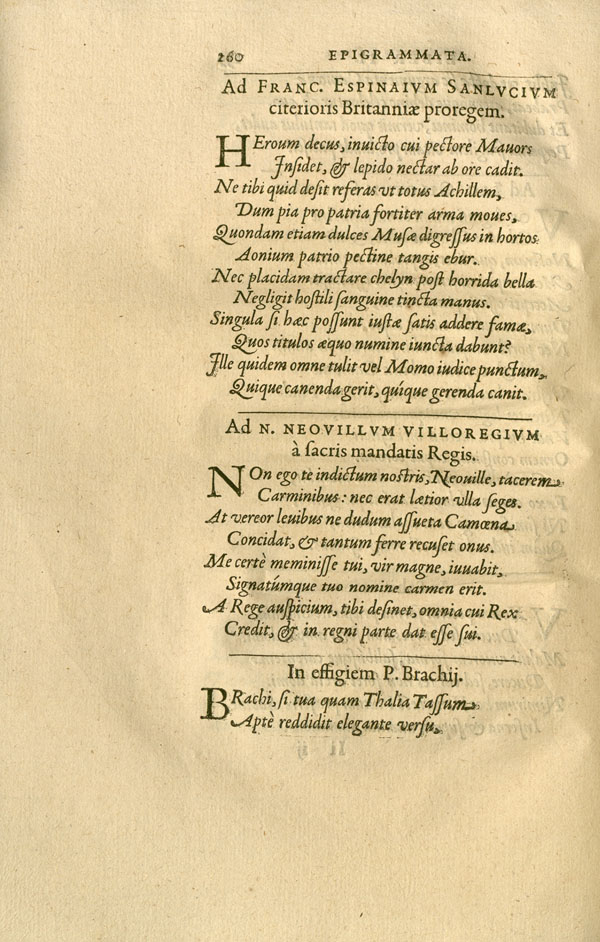 260 EPIGRAMMATA.
Ad FRANC. ESPINAIVM SANLVCIVM
citerioris Britanniæ proregem.
HEroum decus, inuicto cui pectore Mauors
Insidet, & lepido nectar ab ore cadit.
Ne tibi quid desit referas vt totus Achillem,
Dum pia pro patria fortiter arma moues,
Quondam etiam dulces Musæ digressus in hortos
Aonium patrio pectine tangis ebur.
Nec placidam tractare chelyn post horrida bella
Negligit hostili sanguine tincta manus.
Singula si hæc possunt iustæ satis addere famæ,
Quos titulos æquo numine iuncta dabunt?
Ille quidem omne tulit vel Momo iudice punctum,
Quique canenda gerit, quíque gerenda canit.
Ad N. NEOVILLVM VILLOREGIVM
à sacris mandatis Regis.
NOn ego te indictum nostris, Neouille, tacerem
Carminibus: nec erat lætior vlla seges.
At vereor leuibus ne dudum assueta Camœna
Concidat, & tantum ferre recuset onus.
Me certè meminisse tui, vir magne, iuuabit,
Signatúmque tuo nomine carmen erit.
A Rege auspicium, tibi desinet, omnia cui Rex
Credit, & in regni parte dat esse sui.
In effigiem P. Brachij.
BRachi, si tua quam Thalia Tassum
Aptè reddidit elegante versu,